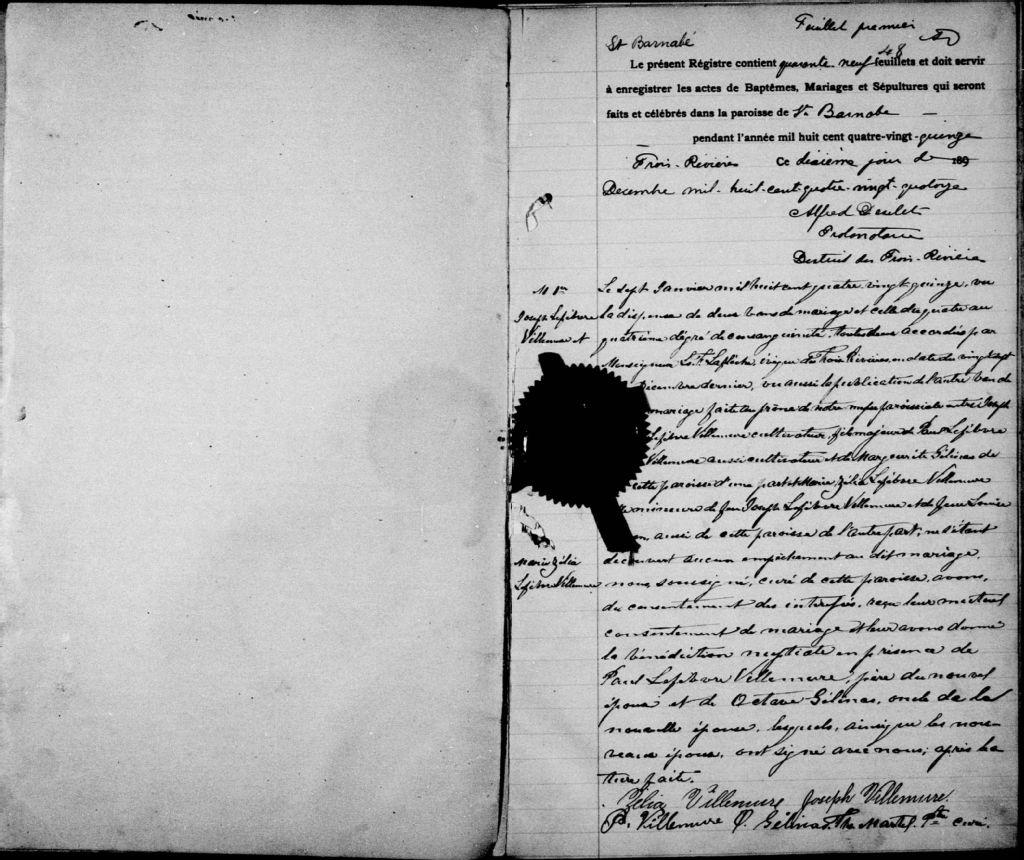 Feuillet premier
St Barnabé
48
Le présent Régistre contient quarante neuf feuillets et doit servir
à enregistrer les actes de Baptêmes, Mariages et Sépultures qui seront
faits et célébrés dans la paroisse de St Barnabe
pendant l'année mil huit cent quatre-vingt-quinze
Trois-Rivières Ce dixième jour de 189
Decembre mil-huit-cent quatre-vingt-quatorze
Alfred Desilets
Protonotaire
District des Trois-Rivières
M 1re
Joseph Lefebvre
Villemure et
Marie Zélia
Lefebvre Villemure
Le sept Janvier mil huit cent quatre vingt quinze, vu
la dispense de deux bans de mariage et celle du quatre au
quatrième dégré de consanguinité, toutes deux accordées par
Monseigneur L. F. Laflèche, évêque des Trois Rivières, en date du vingt sept
Décembre dernier, vu aussi la publication de l'autre ban de
mariage faite au prône de notre messe paroissiale entre Joseph
Lefebvre Villemure cultivateur, fils majeur de Paul Lefebvre
Villemure aussi cultivateur et de Marguerite Gélinas de
cette paroisse d'une part et Marie Zélia Lefebvre Villemure
mineure de feu Joseph Lefebvre Villemure et de feue Louise
aussi de cette paroisse de l'autre part; ne s'étant
découvert aucun empêchement au dit mariage,
nous, soussigné, curé de cette paroisse, avons,
du consentement des intéressés, reçu leur mutuel
consentement de mariage et leur avons donné
la bénédiction nuptiale en présence de
Paul Lefebvre Villemure, père du nouvel
époux et de Octave Gélinas, oncle de la
nouvelle épouse, lesquels, ainsi que les nou-
veaux époux, ont signé avec nous; après lec-
ture faite.
Zélia Villemure Joseph Villemure.
P. Villemure O. Gélinas Th. Martel Ptre curé.